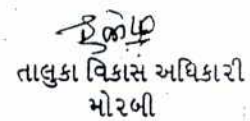 તાલુકા વિકાસ અધિકારી
મોરબી